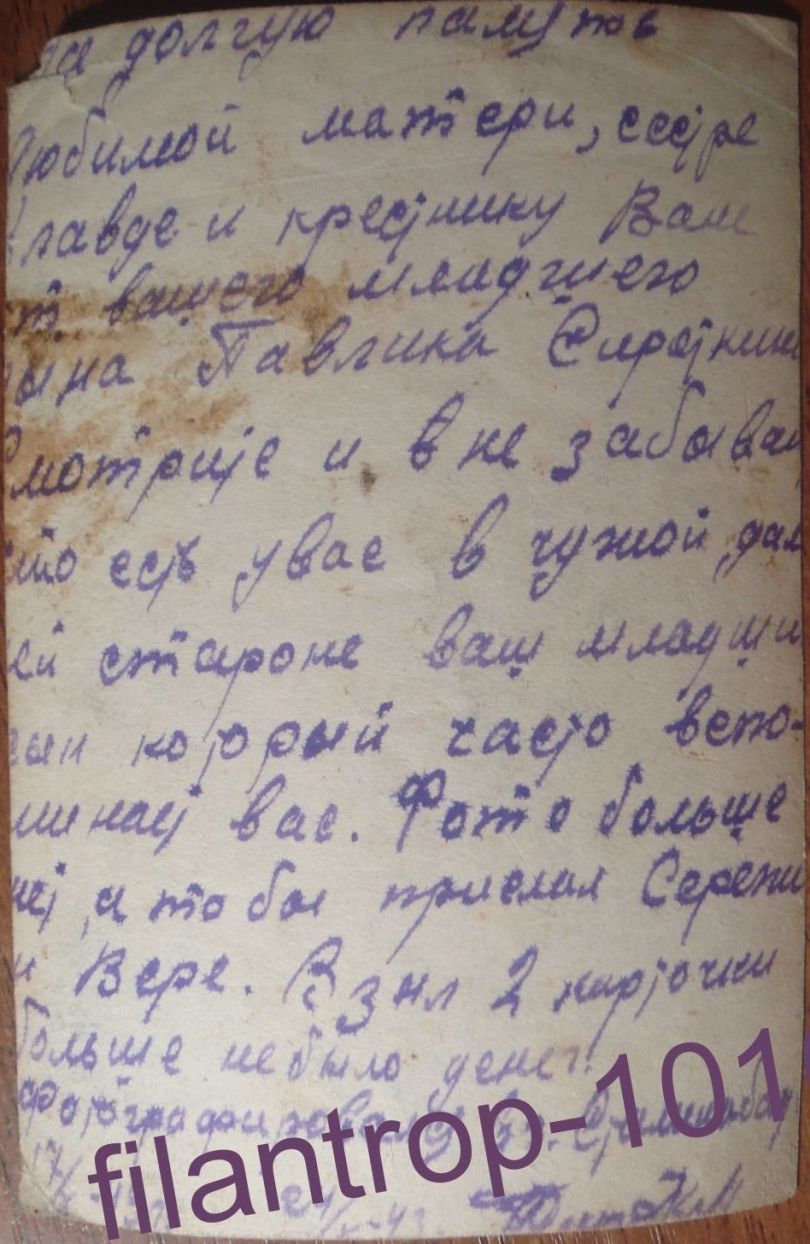 на долгую памуть
Любимой матери, сестре
Клавде и крестнику Ваш
от вашего младшего
сына Павлика Сироткина
Смотрите и вне забывай
что есть увас в чужой дал
ней стороне ваш младши
сын который часто вспо-
минает вас. Фото больше
нет, а тобы прислал Сережи
и Вере. Взял 2 карточки
больше небыло денег.
Фотографировался
filantrop-101